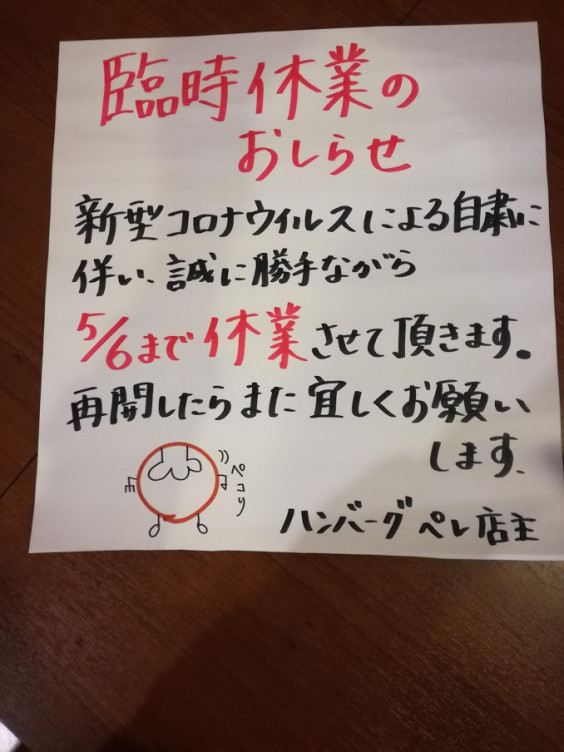 臨時休業の
おしらせ
新型コロナウィルスによる自粛に
伴い、誠に勝手ながら
5/6まで休業させて頂きます。
再開したらまた宜しくお願い
します、
ペコリ
ハンバーグペレ店主